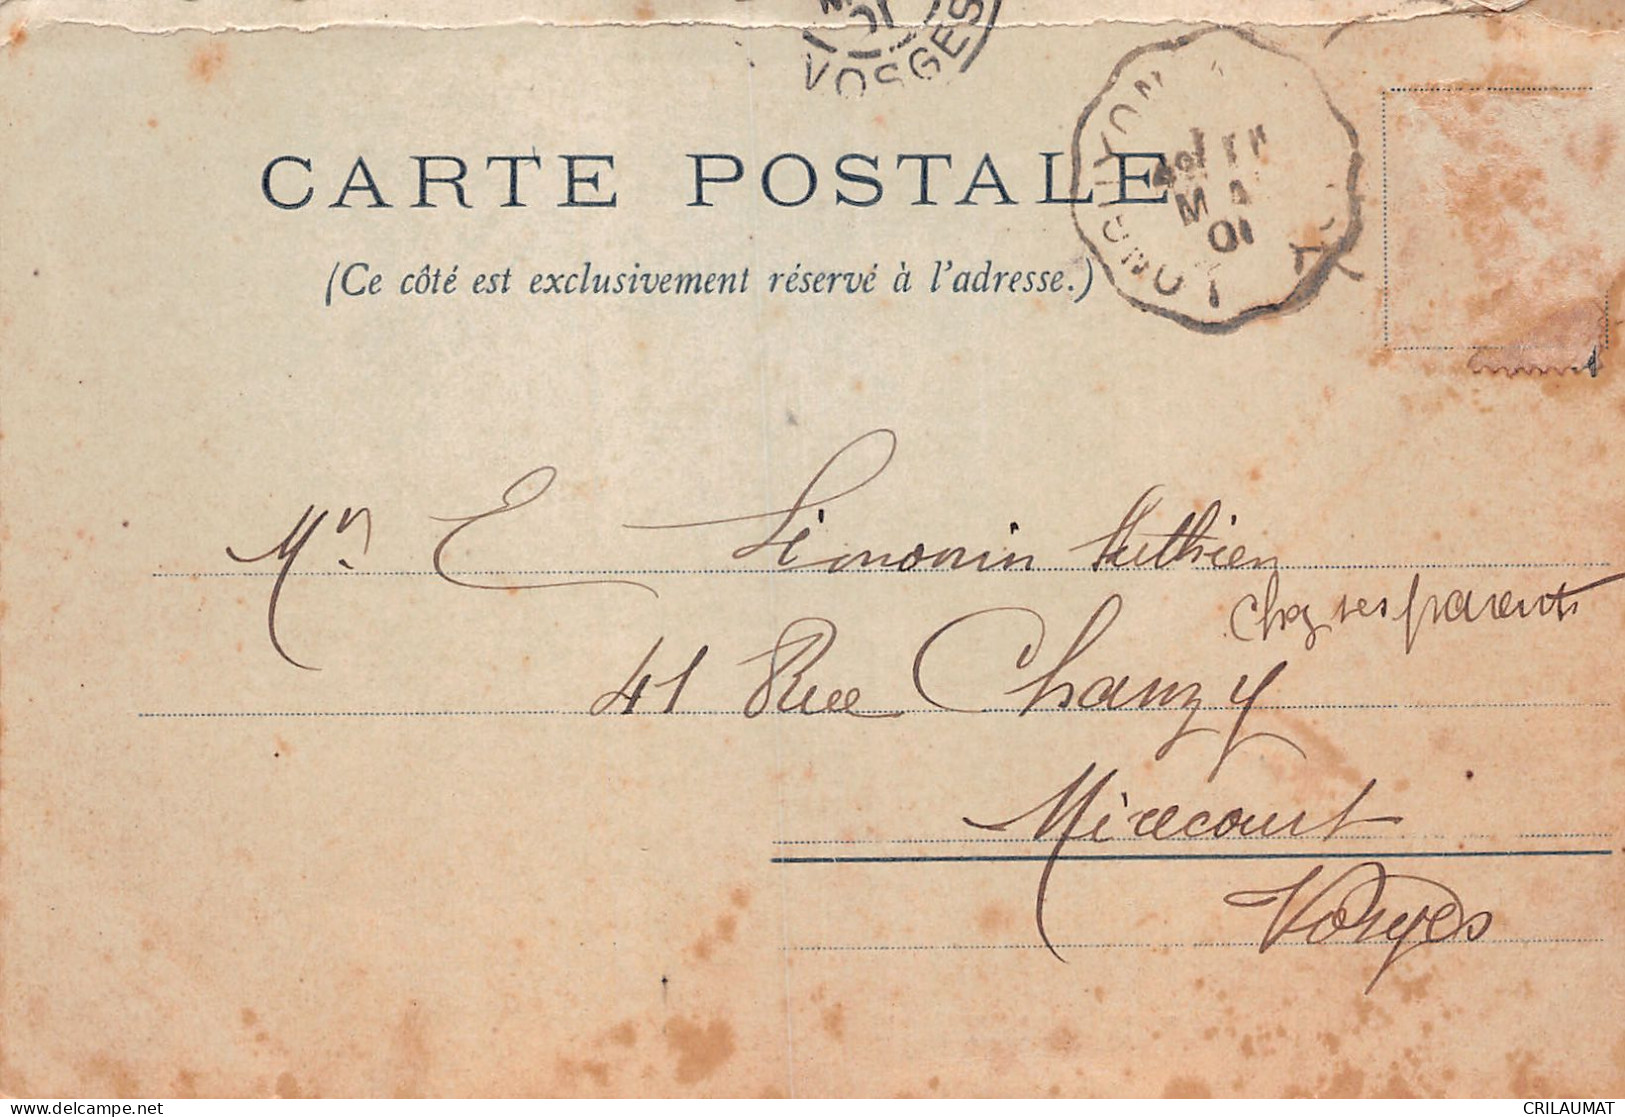 VOSGES
01
LONGUYON
MAI
01
CARTE POSTALE
(Ce côté est exclusivement réservé à l'adresse.)
Mr E Simonin Luthier
chez ses parents
41 Rue Chanzy
Mirecourt
Vosges
CRILAUMAT